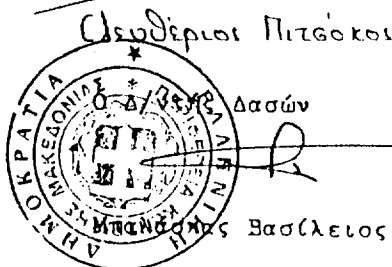 Ελευθέριος Πιτσόκος
Ο Δ/ντής Δασών
Μπανάσκας Βασίλειος
ΕΛΛΗΝΙΚΗ ΔΗΜΟΚΡΑΤΙΑ
ΜΑΚΕΔΟΝΙΑΣ